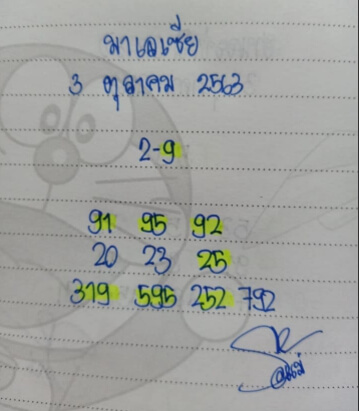 มาเลเซีย
3 ตุลาคม 2563
2-9
91 95 92
20 23 25
319 595 252 792